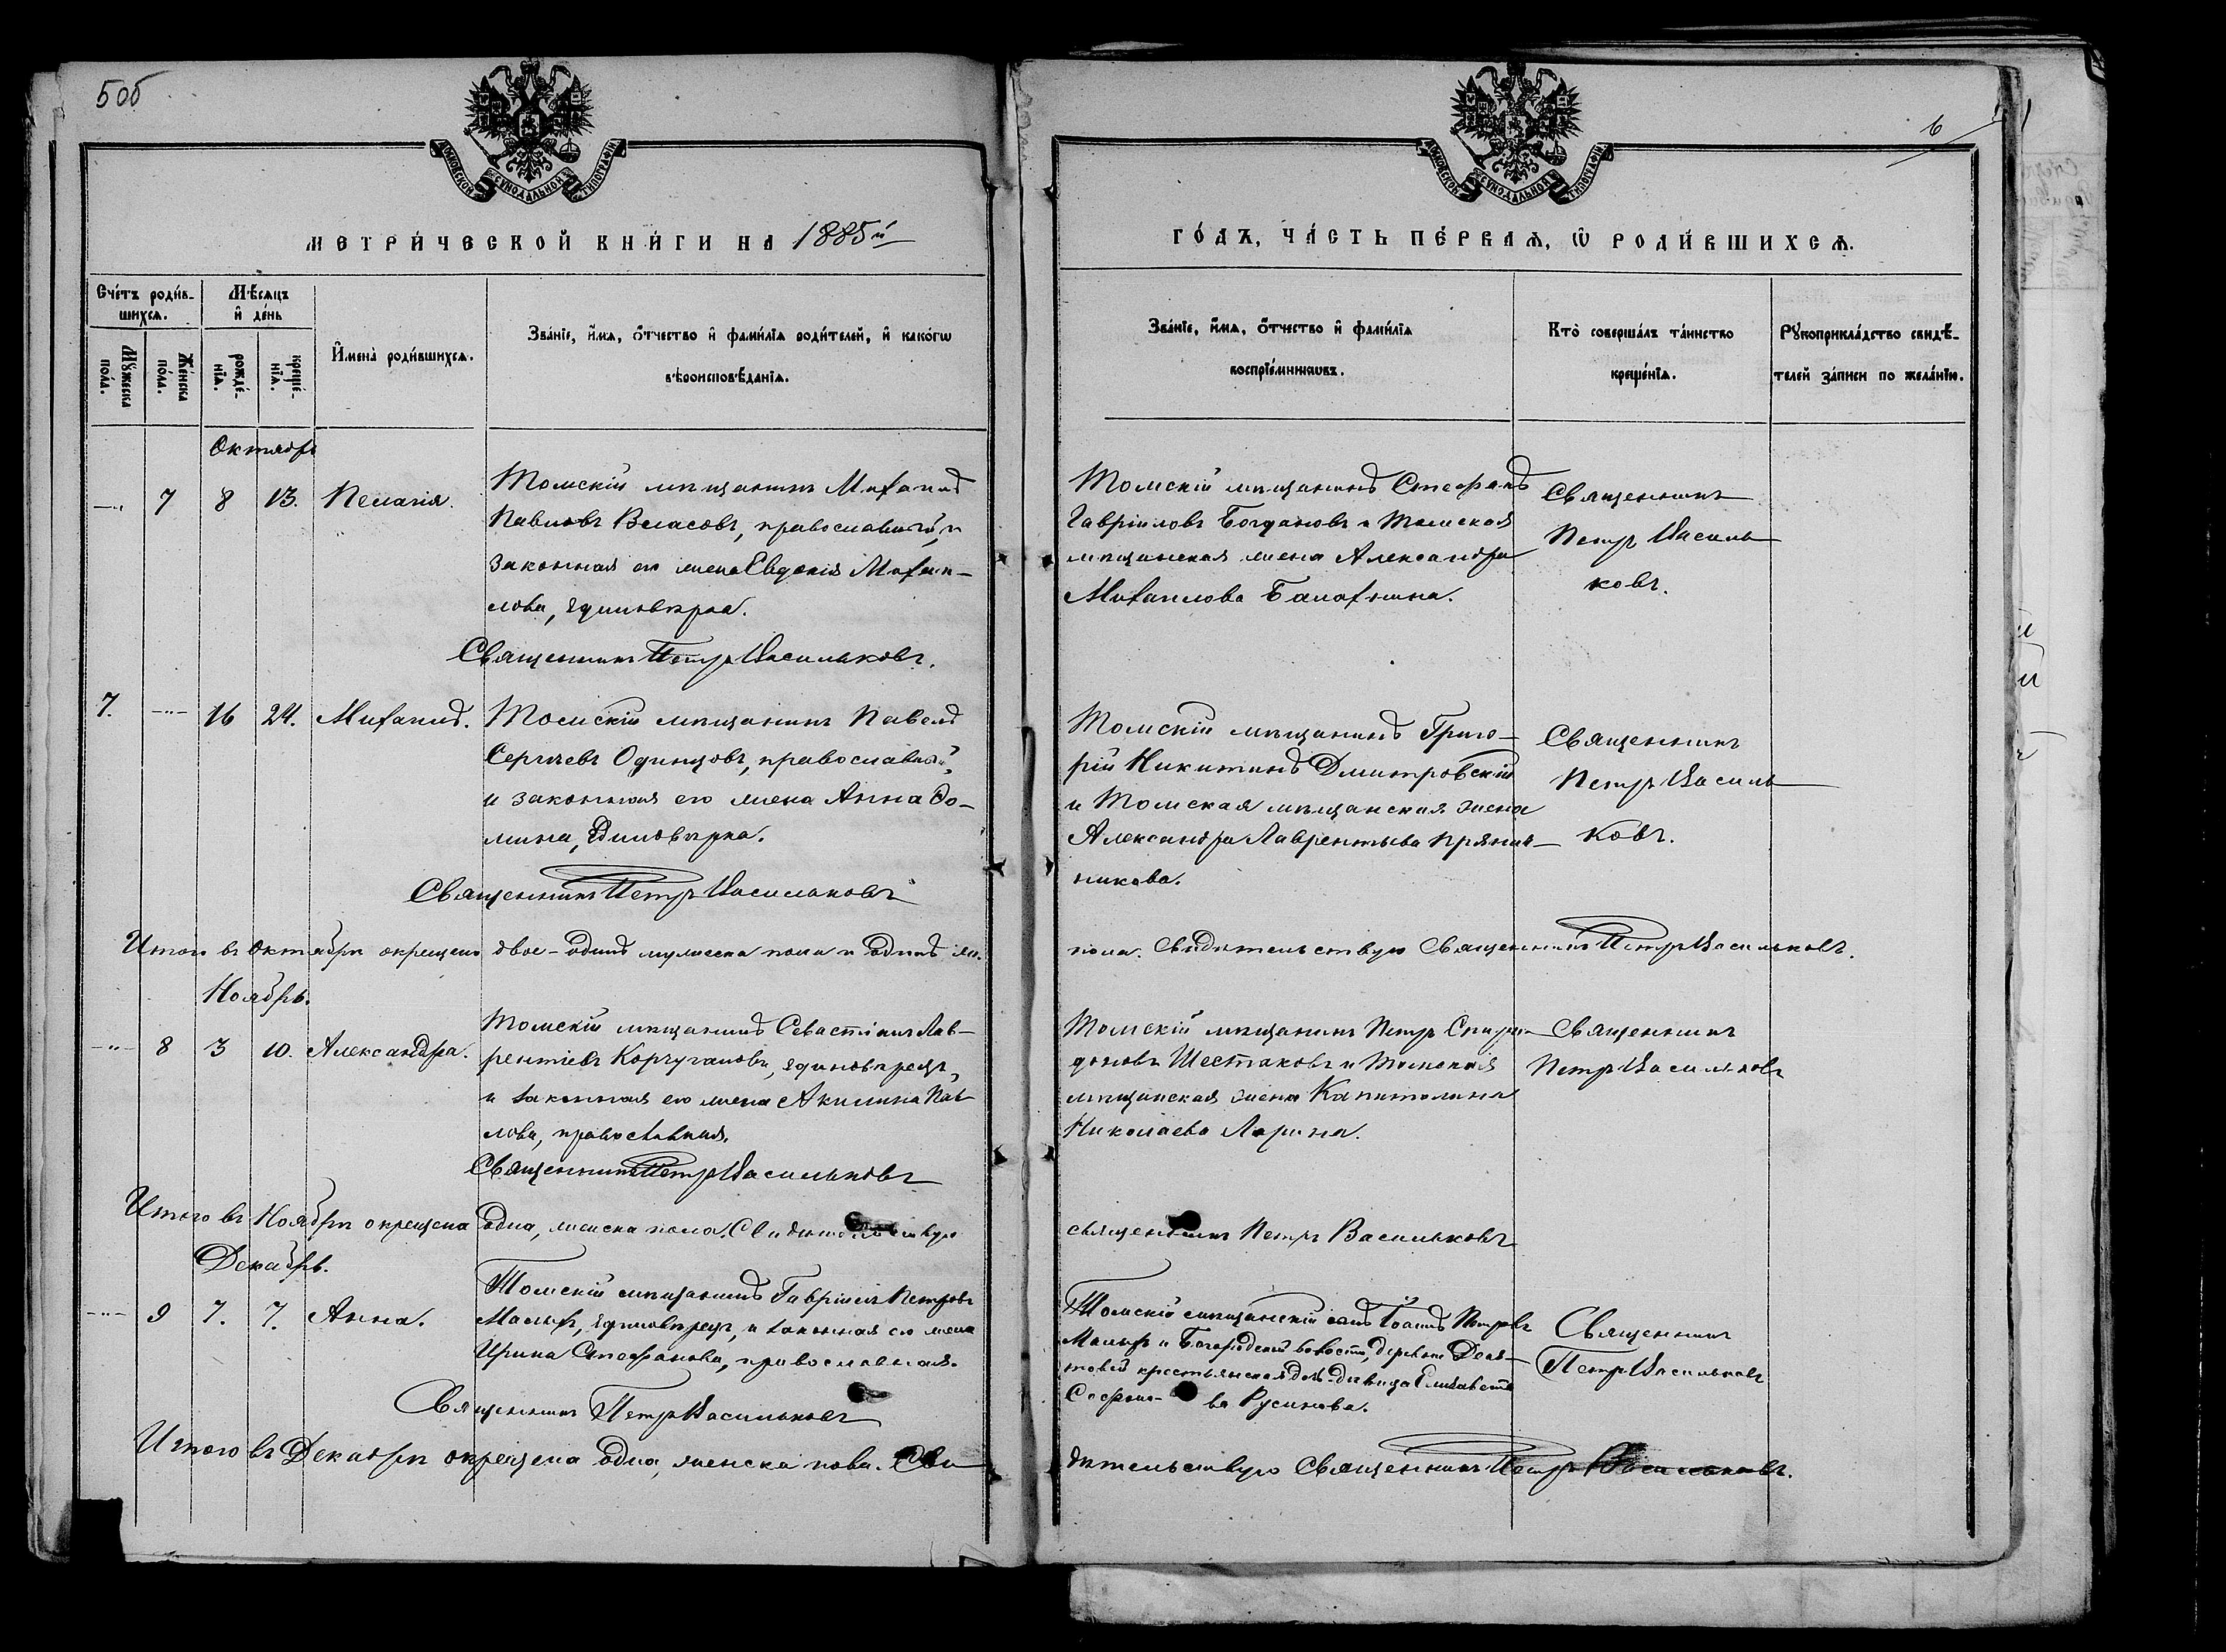 5об
6
МОСКОВСКОЙ СѴНОДАЛЬНОЙ ТИПОГРАФІИ
МОСКОВСКОЙ СѴНОДАЛЬНОЙ ТИПОГРАФІИ
МЕТРИ́ЧЕСКОЙ КНИ́ГИ НА 1885й
ГО́ДЪ, ЧА́СТЬ ПЕ́РВАѦ, Ѡ҆ РОДИ́ВШИХСѦ.
Сче́тъ роди́в-
шихсѧ.
Мꙋ́жеска
по́ла.
Же́нска
по́ла.
Мѣ́сѧцъ
и҆ де́нь
рожде́-
нїѧ.
креще́-
нїѧ.
И҆мена̀ роди́вшихсѧ.
Зва́нїе, и҆́мѧ, ѻ҆́тчество и҆ фами́лїѧ роди́телей, и҆ како́гѡ
вѣроисповѣ́данїѧ.
Зва́нїе, и҆́мѧ, ѻ҆́тчество и҆ фами́лїѧ
воспрїе́мникѡвъ.
Кто̀ соверша́лъ та́инство
креще́нїѧ.
Рꙋкоприкла́дство свидѣ́-
телей за́писи по жела́нїю.
Октябрь
-"- 7 8 13. Пелагія.
Томскій мѣщанинъ Михаилъ
Павловъ Власовъ, православный, и
законная его жена Евдокія Михаи-
лова, единовѣрка.
Священникъ Петръ Васильковъ.
Томскій мѣщанинъ Стефанъ
Гавріиловъ Богдановъ и Томская
мѣщанская жена Александра
Михаилова Балахнина.
Священникъ
Петръ Василь
ковъ.
7. -"- 16 24. Михаилъ.
Томскій мѣщанинъ Павелъ
Сергѣевъ Одинцовъ, православный,
и законная его жена Анна Фо-
мина, единовѣрка.
Священникъ Петръ Васильковъ
Томскій мѣщанинъ Григо-
рій Никитинъ Дмитровскій
и Томская мѣщанская жена
Александра Лаврентьева Прянич-
никова.
Священникъ
Петръ Василь
ковъ.
Итого въ Октябрѣ окрещено двое - одинъ мужеска пола и одинъ же.
пола. Свидѣтельствую Священникъ Петръ Васильковъ.
Ноябрь.
-"- 8 3 10. Александра.
Томскій мѣщанинъ Севастіанъ Лав-
рентіевъ Корчугановъ, единовѣрецъ,
и законная его жена Акилина Пав-
лова, православная.
Священникъ Петръ Васильковъ
Томскій мѣщанинъ Петръ Спири-
доновъ Шестаковъ и Томская
мѣщанская жена Капитолина
Николаева Ларина.
Священникъ
Петръ Васильковъ
Итого въ Ноябрѣ окрещена одна, женска пола. Свидѣтельствую
священникъ Петръ Васильковъ
Декабрь.
-"- 9 7. 7. Анна.
Томскій мѣщанинъ Гавріилъ Петровъ
Малыхъ, единовѣрецъ, и законная его жена
Ирина Стефанова, православная.
Священникъ Петръ Васильковъ
Томскій мѣщанскій сынъ Іоаннъ Петровъ
Малыхъ и Богородской волости, деревни
крестьянская дочь-дѣвица Елизавета
Софроно- ва Русинова.
Священникъ
Петръ Васильковъ
Итого въ Декабрѣ окрещена одна, женска пола. Сви
дѣтельствую Священникъ Петръ Васильковъ.